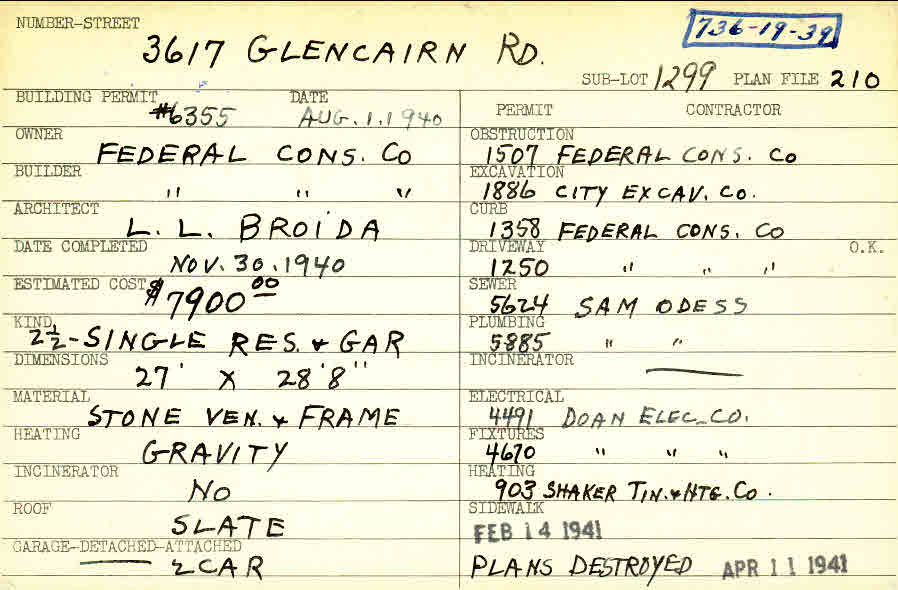 NUMBER-STREET
3617 GLENCAIRN RD.
736-19-39
SUB-LOT 1299 PLAN FILE 210
BUILDING PERMIT DATE
#6355 AUG. 1. 1940
OWNER
FEDERAL CONS. CO
BUILDER
" " "
ARCHITECT
L. L. BROIDA
DATE COMPLETED
NOV. 30. 1940
ESTIMATED COST $7900.00
KIND
2½-SINGLE RES. & GAR
DIMENSIONS
27' X 28'8"
MATERIAL
STONE VEN. & FRAME
HEATING
GRAVITY
INCINERATOR
NO
ROOF
SLATE
GARAGE-DETACHED-ATTACHED
2 CAR
PERMIT CONTRACTOR
OBSTRUCTION
1507 FEDERAL CONS. CO
EXCAVATION
1886 CITY EXCAV. CO.
CURB
1358 FEDERAL CONS. CO
DRIVEWAY O.K.
1250 " " "
SEWER
5624 SAM ODESS
PLUMBING
5885 " "
INCINERATOR
ELECTRICAL
4491 DOAN ELEC. CO.
FIXTURES
4670 " " "
HEATING
903 SHAKER TIN. & HTG. CO.
SIDEWALK
FEB 14 1941
PLANS DESTROYED APR 11 1941